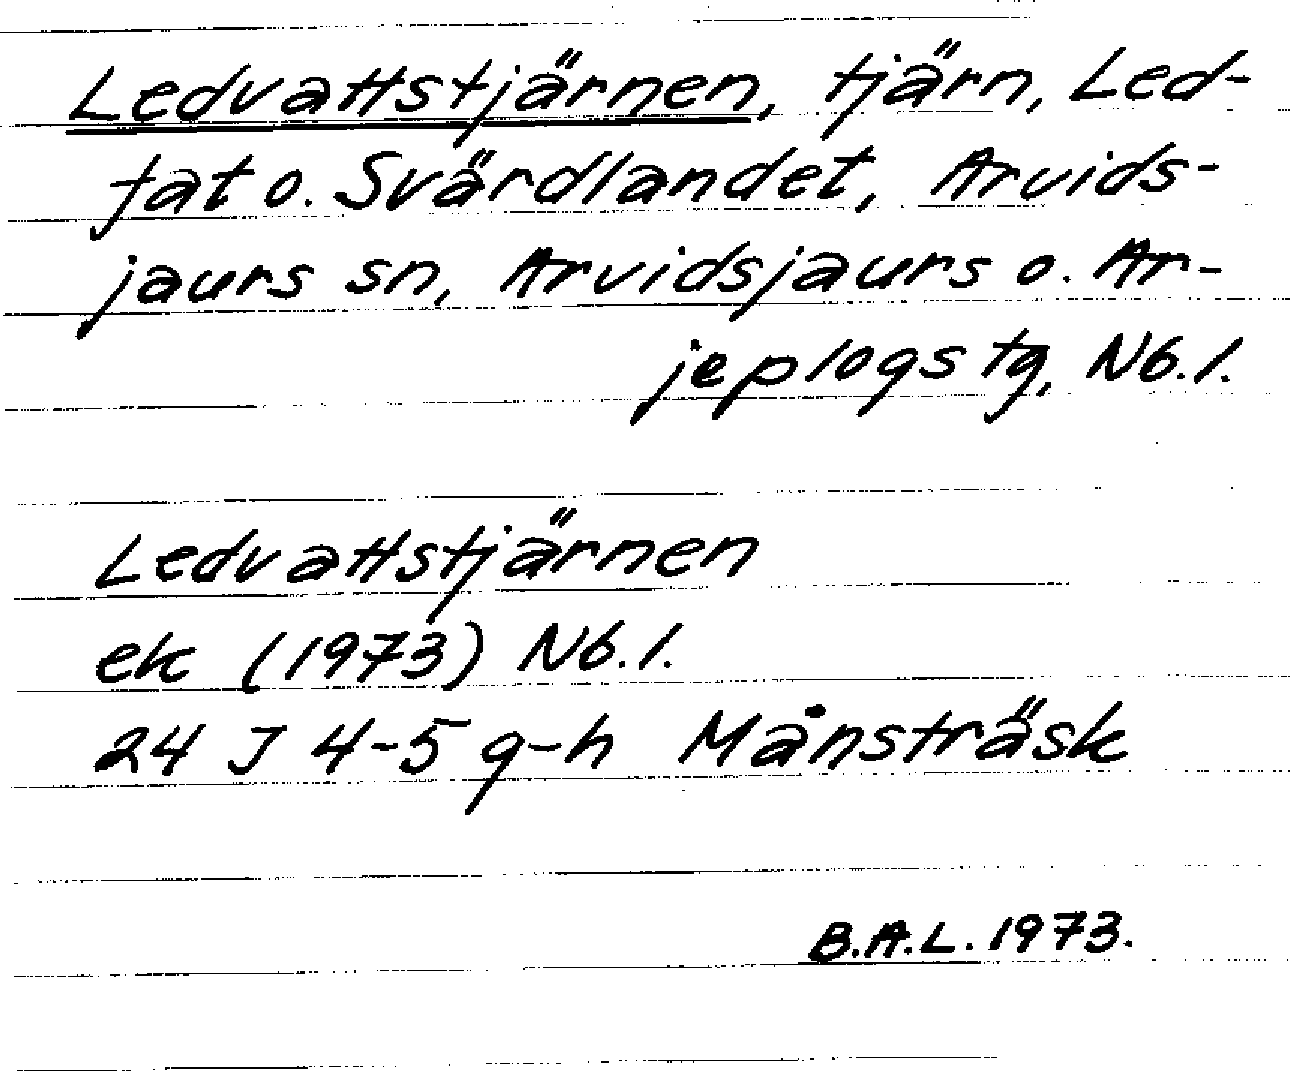 Ledvattstjärnen, tjärn, Led-
fat o. Svärdlandet, Arvids-
jaurs sn, Arvidsjaurs o. Ar-
jeplogs tg, Nb. l.
Ledvattstjärnen
ek (1973) Nb. l.
24 J 4-5 g-h Månsträsk
B.A.L. 1973.